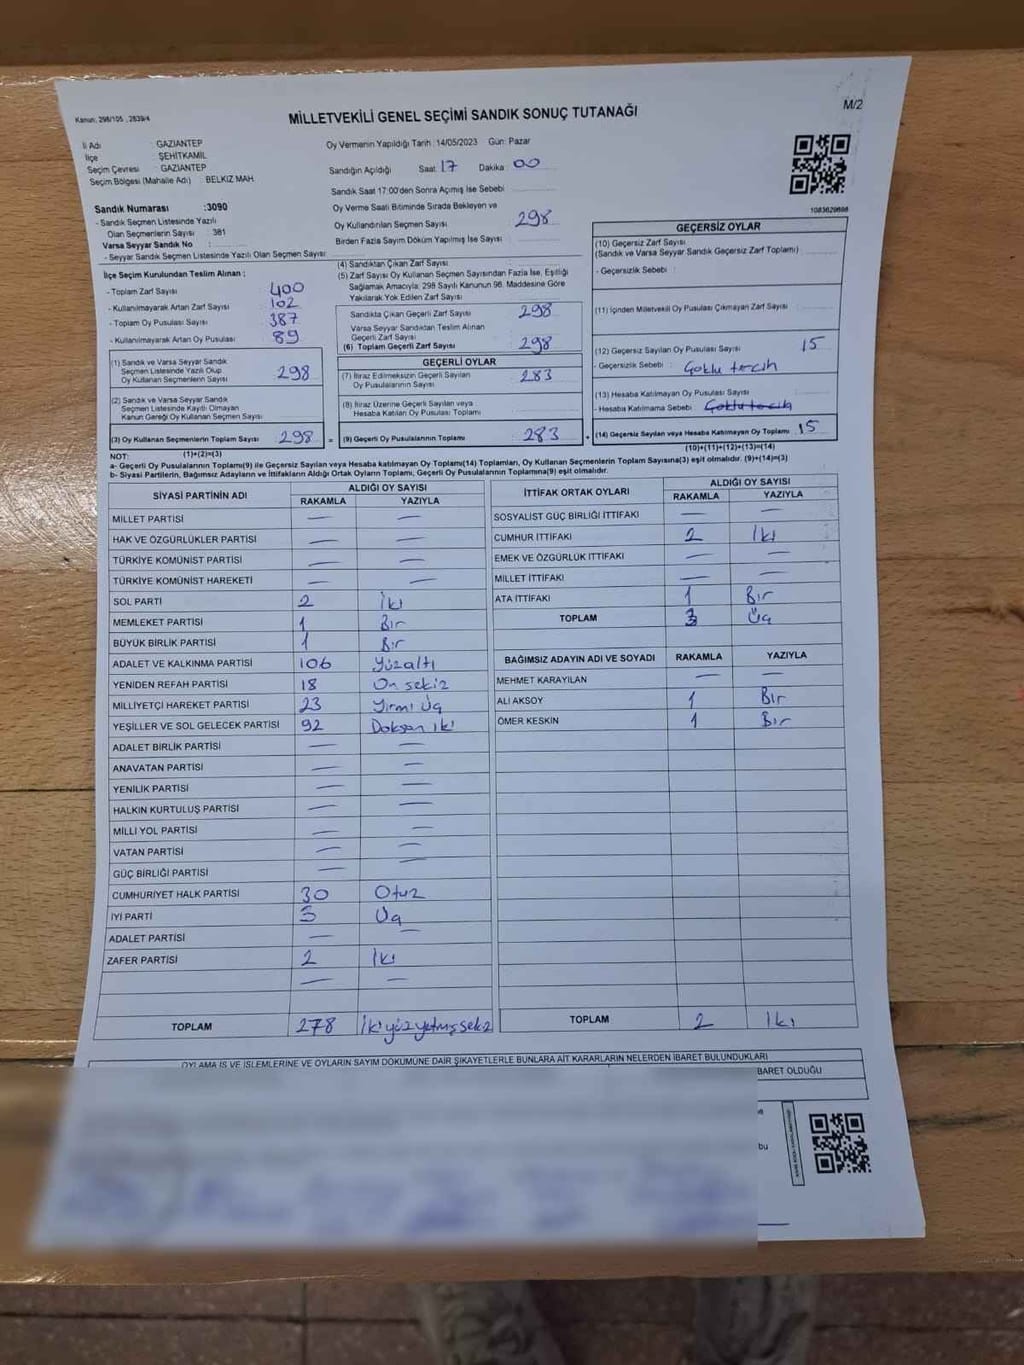 Kanun: 298/105 , 2839/4
MİLLETVEKİLİ GENEL SEÇİMİ SANDIK SONUÇ TUTANAĞI
M/2
İl Adı : GAZİANTEP
İlçe : ŞEHİTKAMİL
Seçim Çevresi : GAZİANTEP
Seçim Bölgesi (Mahalle Adı) : BELKIZ MAH.
Oy Vermenin Yapıldığı Tarih : 14/05/2023 Gün: Pazar
Sandığın Açıldığı Saat 17 Dakika 00
Sandık Saat 17:00'den Sonra Açmış İse Sebebi
Oy Verme Saati Bitiminde Sırada Bekleyen ve
Oy Kullandırılan Seçmen Sayısı 298
Birden Fazla Sayım Döküm Yapılmış İse Sayısı
1083629698
Sandık Numarası :3090
- Sandık Seçmen Listesinde Yazılı
Olan Seçmenlerin Sayısı : 381
Varsa Seyyar Sandık No :
- Seyyar Sandık Seçmen Listesinde Yazılı Olan Seçmen Sayısı
İlçe Seçim Kurulundan Teslim Alınan ;
- Toplam Zarf Sayısı 400
- Kullanılmayarak Artan Zarf Sayısı 102
- Toplam Oy Pusulası Sayısı 387
- Kullanılmayarak Artan Oy Pusulası 89
(1) Sandık ve Varsa Seyyar Sandık
Seçmen Listesinde Yazılı Olup
Oy Kullanan Seçmenlerin Sayısı 298
(2) Sandık ve Varsa Seyyar Sandık
Seçmen Listesinde Kayıtlı Olmayan
Kanun Gereği Oy Kullanan Seçmen Sayısı
(3) Oy Kullanan Seçmenlerin Toplam Sayısı 298 =
(4) Sandıktan Çıkan Zarf Sayısı
(5) Zarf Sayısı Oy Kullanan Seçmen Sayısından Fazla İse, Eşitliği
Sağlamak Amacıyla; 298 Sayılı Kanunun 98. Maddesine Göre
Yakılarak Yok Edilen Zarf Sayısı
Sandıkta Çıkan Geçerli Zarf Sayısı 298
Varsa Seyyar Sandıktan Teslim Alınan
Geçerli Zarf Sayısı
(6) Toplam Geçerli Zarf Sayısı 298
GEÇERLİ OYLAR
(7) İtiraz Edilmeksizin Geçerli Sayılan
Oy Pusulalarının Sayısı 283
(8) İtiraz Üzerine Geçerli Sayılan veya
Hesaba Katılan Oy Pusulası Toplamı
(9) Geçerli Oy Pusulalarının Toplamı 283 +
GEÇERSİZ OYLAR
(10) Geçersiz Zarf Sayısı
(Sandık ve Varsa Seyyar Sandık Geçersiz Zarf Toplamı)
- Geçersizlik Sebebi :
(11) İçinden Milletvekili Oy Pusulası Çıkmayan Zarf Sayısı
(12) Geçersiz Sayılan Oy Pusulası Sayısı 15
- Geçersizlik Sebebi : Çoklu tercih
(13) Hesaba Katılmayan Oy Pusulası Sayısı
- Hesaba Katılmama Sebebi : Çoklu tercih
(14) Geçersiz Sayılan veya Hesaba Katılmayan Oy Toplamı 15
NOT: (1)+(2)=(3)
(10)+(11)+(12)+(13)=(14)
a- Geçerli Oy Pusulalarının Toplamı(9) ile Geçersiz Sayılan veya Hesaba katılmayan Oy Toplamı(14) Toplamları, Oy Kullanan Seçmenlerin Toplam Sayısına(3) eşit olmalıdır. (9)+(14)=(3)
b- Siyasi Partilerin, Bağımsız Adayların ve İttifakların Aldığı Ortak Oyların Toplamı, Geçerli Oy Pusulalarının Toplamına(9) eşit olmalıdır.
SİYASİ PARTİNİN ADI ALDIĞI OY SAYISI
RAKAMLA YAZIYLA
MİLLET PARTİSİ — —
HAK VE ÖZGÜRLÜKLER PARTİSİ — —
TÜRKİYE KOMÜNİST PARTİSİ — —
TÜRKİYE KOMÜNİST HAREKETİ — —
SOL PARTİ 2 İki
MEMLEKET PARTİSİ 1 Bir
BÜYÜK BİRLİK PARTİSİ 1 Bir
ADALET VE KALKINMA PARTİSİ 106 Yüzaltı
YENİDEN REFAH PARTİSİ 18 On sekiz
MİLLİYETÇİ HAREKET PARTİSİ 23 Yirmi Üç
YEŞİLLER VE SOL GELECEK PARTİSİ 92 Doksan iki
ADALET BİRLİK PARTİSİ — —
ANAVATAN PARTİSİ — —
YENİLİK PARTİSİ — —
HALKIN KURTULUŞ PARTİSİ — —
MİLLİ YOL PARTİSİ — —
VATAN PARTİSİ — —
GÜÇ BİRLİĞİ PARTİSİ — —
CUMHURİYET HALK PARTİSİ 30 Otuz
İYİ PARTİ 3 Üç
ADALET PARTİSİ — —
ZAFER PARTİSİ 2 İki
— —
TOPLAM 278 İkiyüzyetmişsekiz
İTTİFAK ORTAK OYLARI ALDIĞI OY SAYISI
RAKAMLA YAZIYLA
SOSYALİST GÜÇ BİRLİĞİ İTTİFAKI — —
CUMHUR İTTİFAKI 2 İki
EMEK VE ÖZGÜRLÜK İTTİFAKI — —
MİLLET İTTİFAKI — —
ATA İTTİFAKI 1 Bir
TOPLAM 3 Üç
BAĞIMSIZ ADAYIN ADI VE SOYADI RAKAMLA YAZIYLA
MEHMET KARAYILAN — —
ALİ AKSOY 1 Bir
ÖMER KESKİN 1 Bir
TOPLAM 2 İki
OYLAMA İŞ VE İŞLEMLERİNE VE OYLARIN SAYIM DÖKÜMÜNE DAİR ŞİKAYETLERLE BUNLARA AİT KARARLARIN NELERDEN İBARET BULUNDUKLARI
BARET OLDUĞU
bu